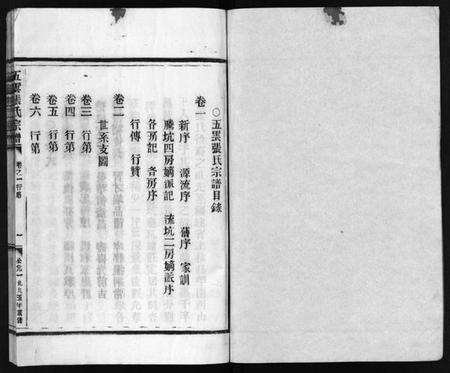 ○五雲張氏宗譜目錄
卷一
新序 源流序 舊序 家訓
騰坑四房嫡派記 流坑二房嫡派序
各房記 各房序
行傳 行贊
卷二
世系支圖
卷三 行第
卷四 行第
卷五 行第
卷六 行第
五雲張氏宗譜 卷之一行第 一 公元一九九五年重修